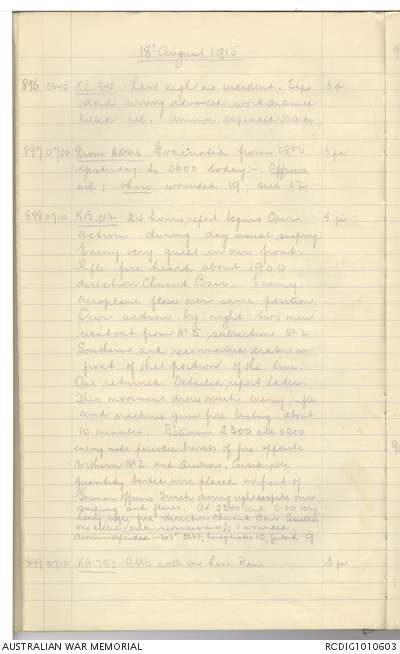 18th August 1915
896 0640 KC. last night no incident. Saps
and wiring advanced work continued
killed nil. Ammn expended
897 0700 From ADMS Evacuated from 1800
yesterday to 0600 today - Officers
nil; others wounded 19, sick 12
898 0710 KB.112 24 hours report begins Our
action during day usual sniping.
Enemy very quiet in our front.
Rifle fire heard about 1900
direction Chunuk Bair. Enemy
aeroplane flew over same position.
Our action by night two men
went out from No 5 subsection No 2
Southern and reconnoitred crater in
front of that portion of the line.
One returned. Detailed report later.
This movement drew much enemy rifle
and machine gun fire lasting about
10 minutes. Between 2300 and 0200
enemy made periodic bursts of fire opposite
Northern No 2 and Quinns. Considerable
quantity barbed wire placed in front of
German Officers Trench during night despite our
sniping and flares. At 2300 and 0100 very
heavy rifle fire direction Chunuk Bair Casualties
one killed (); 1 wounded.
Ammn expended :- 303" 3255,
899 0710 KA.793 All's well on Lone Pine
AUSTRALIAN WAR MEMORIAL
RCDIG1010603